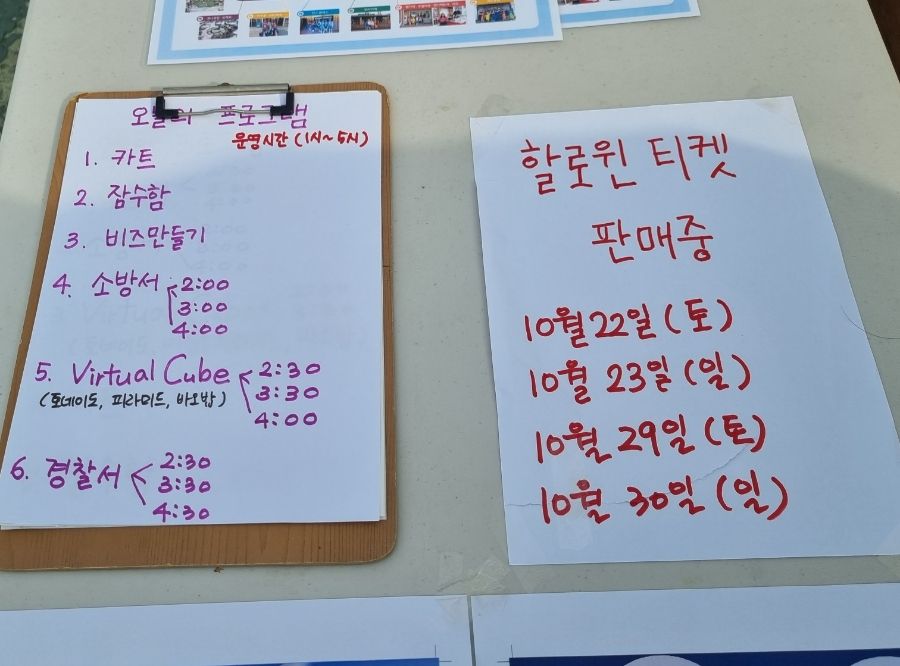 오늘의 프로그램
운영시간 (1시~5시)
1. 카트
2. 잠수함
3. 비즈만들기
4. 소방서 2:00
3:00
4:00
5. Virtual Cube 2:30
(토네이도, 피라미드, 바오밥) 3:30
4:00
6. 경찰서 2:30
3:30
4:30
할로윈 티켓
판매중
10월 22일 (토)
10월 23일 (일)
10월 29일 (토)
10월 30일 (일)